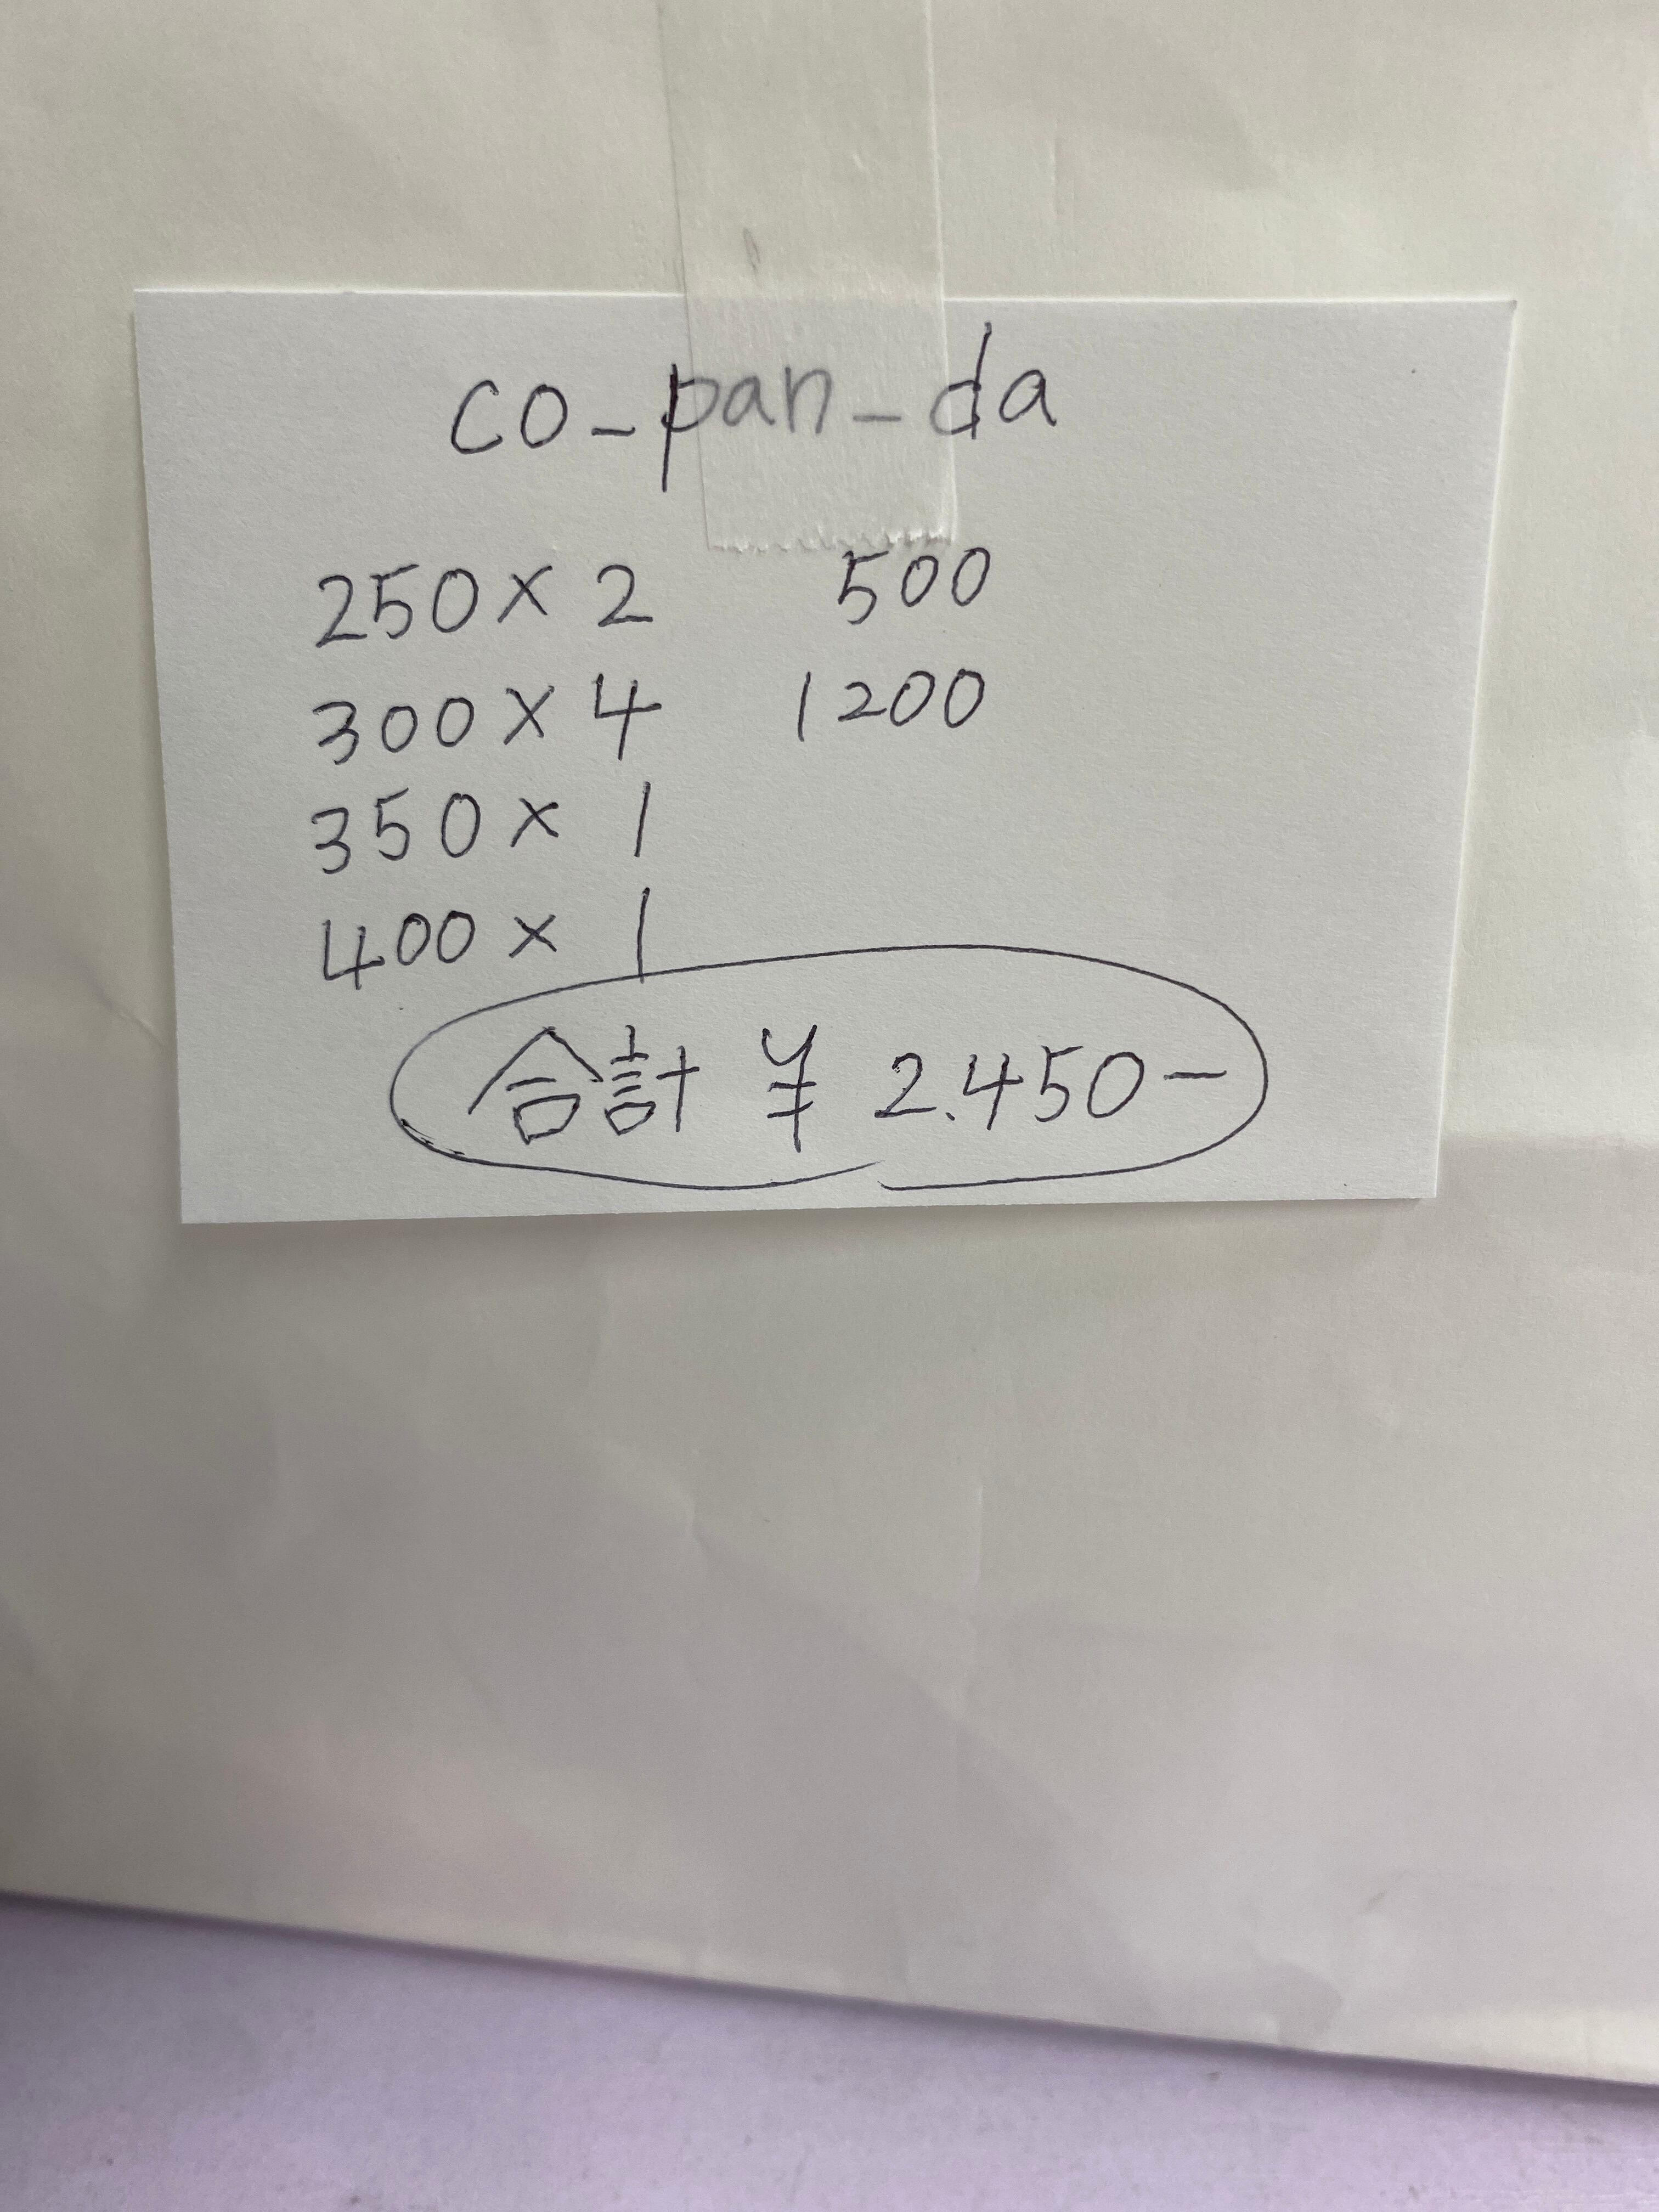 co_pan_da
250 × 2 500
300 × 4 1200
350 × 1
400 × 1
合計 ¥ 2.450-